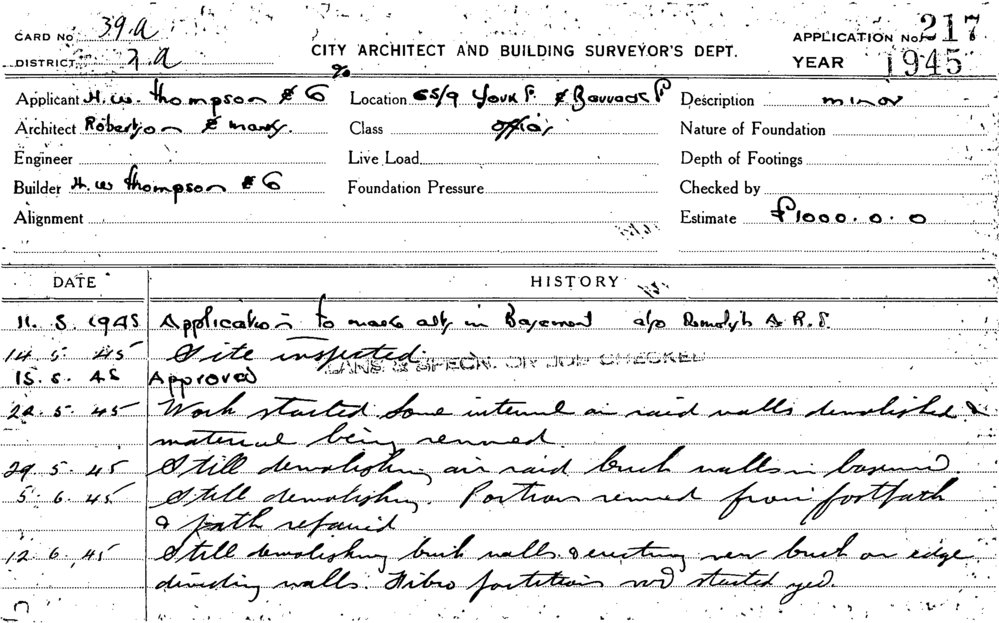 CARD No 39.A
DISTRICT 2.A
CITY ARCHITECT AND BUILDING SURVEYOR'S DEPT.
APPLICATION No. 217
YEAR 1945
Applicant H. W. Thompson & Co
Location 65/9 York St. & Barrack St
Description minor
Architect Robertson & Marks.
Class
Nature of Foundation
Engineer
Live Load
Depth of Footings
Builder H. W. Thompson & Co
Foundation Pressure
Checked by
Alignment
Estimate £1000.0.0
DATE HISTORY
11. 5. 1945 Application to make in Basement also A.R.S.
14. 5. 45 Site inspected.
PLANS & SPECN. ON JOB CHECKED
15. 5. 45 Approved
5. 45 Work started Some internal air raid walls demolished &
material being removed.
29. 5. 45 Still demolishing air raid brick walls in basement.
5. 6. 45 Still demolishing. Portions removed from footpath
& path repaired
12. 6. 45 Still demolishing brick walls & erecting new brick on edge
dividing walls. Fibro partitions not started yet.